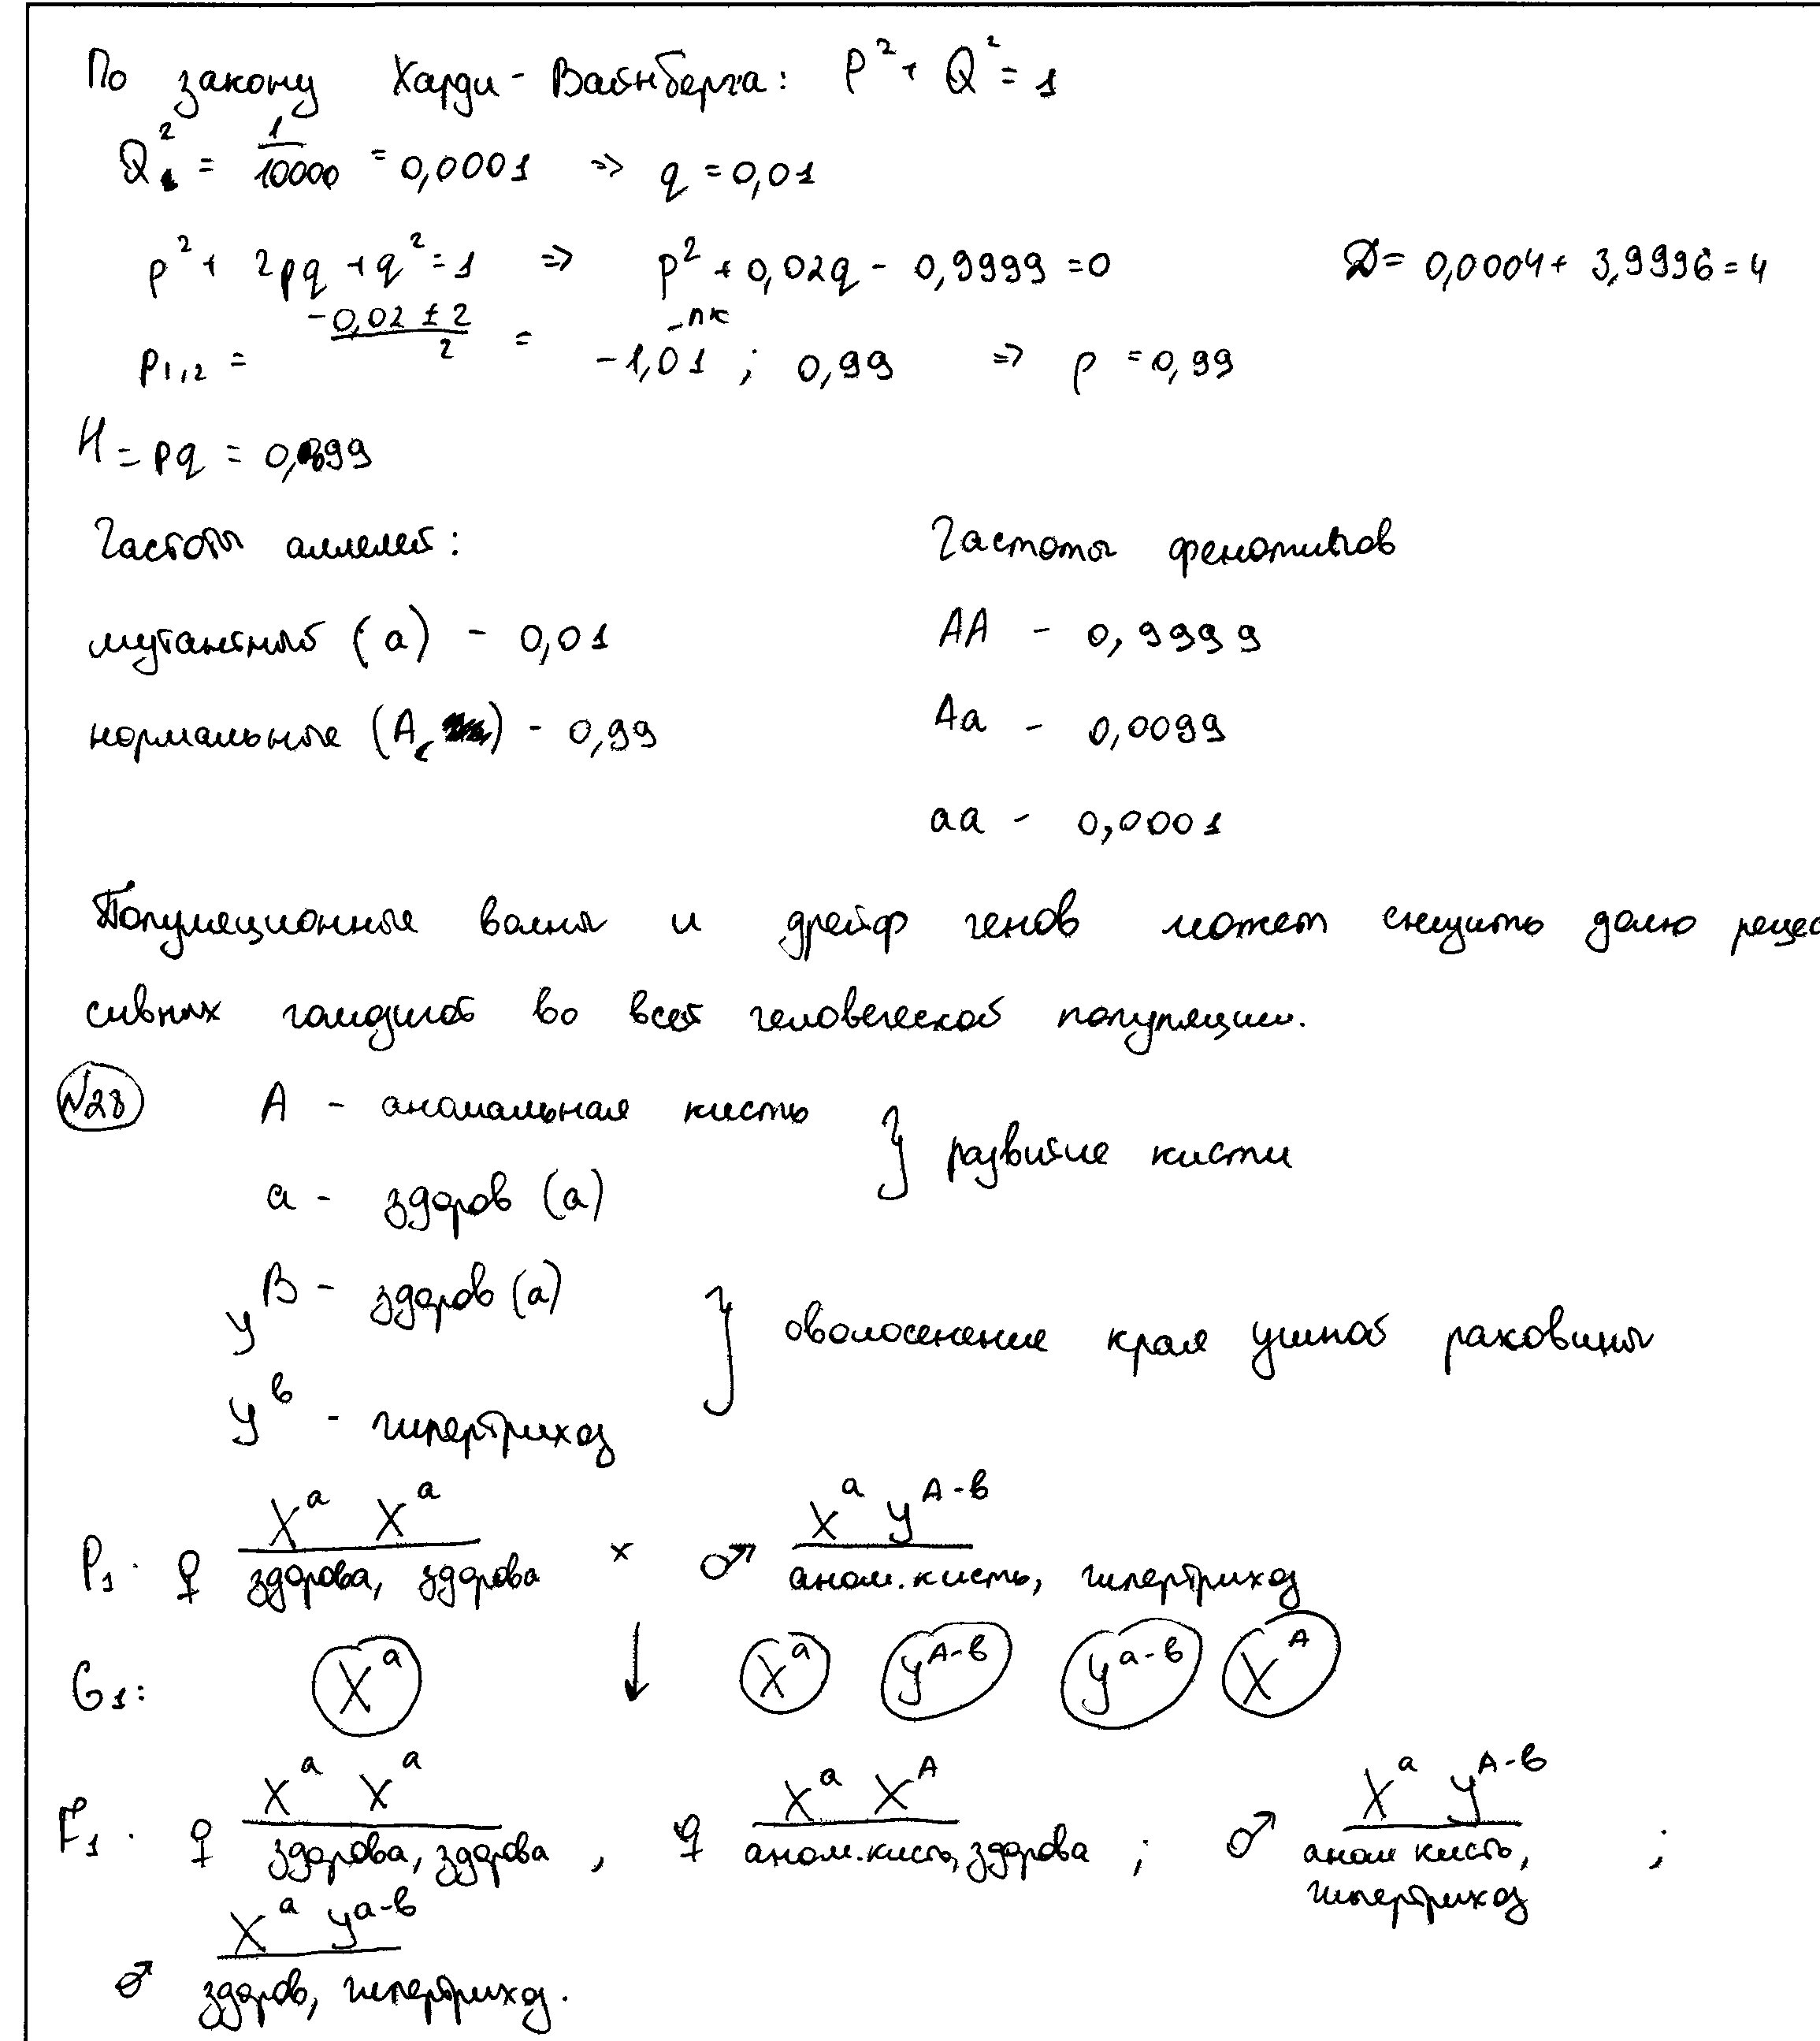 По закону Харди-Вайнберга: P² + Q² = 1
Q² = 1/10000 = 0,0001 => q = 0,01
p² + 2pq + q² = 1 => p² + 0,02q - 0,9999 = 0 D = 0,0004 + 3,9996 = 4
P₁,₂ = (-0,02 ± 2)/2 = -1,01 - пк ; 0,99 => p = 0,99
H = pq = 0,0099
Частоты аллелей: Частоты фенотипов
мутантный (a) - 0,01 AA - 0,9999
нормальные (A) - 0,99 Aa - 0,0099
aa - 0,0001
Популяционные волны и дрейф генов может снизить долю рецес
сивных гомозигот во всей человеческой популяции.
№28 A - аномальная кисть
} развитие кисти
a - здоров (а)
y^B - здоров (а)
} оволосенение края ушной раковины
y^в - гипертрихоз
P₁. ♀ X^a X^a × ♂ X^a y^A-в
здорова, здорова аном. кисть, гипертрихоз
G₁: X^a ↓ X^a y^A-в y^a-в X^A
F₁. ♀ X^a X^a , ♀ X^a X^A ; ♂ X^a y^A-в ;
здорова, здорова аном. кисть, здорова аном кисть,
гипертрихоз
♂ X^a y^a-в
здоров, гипертрихоз.